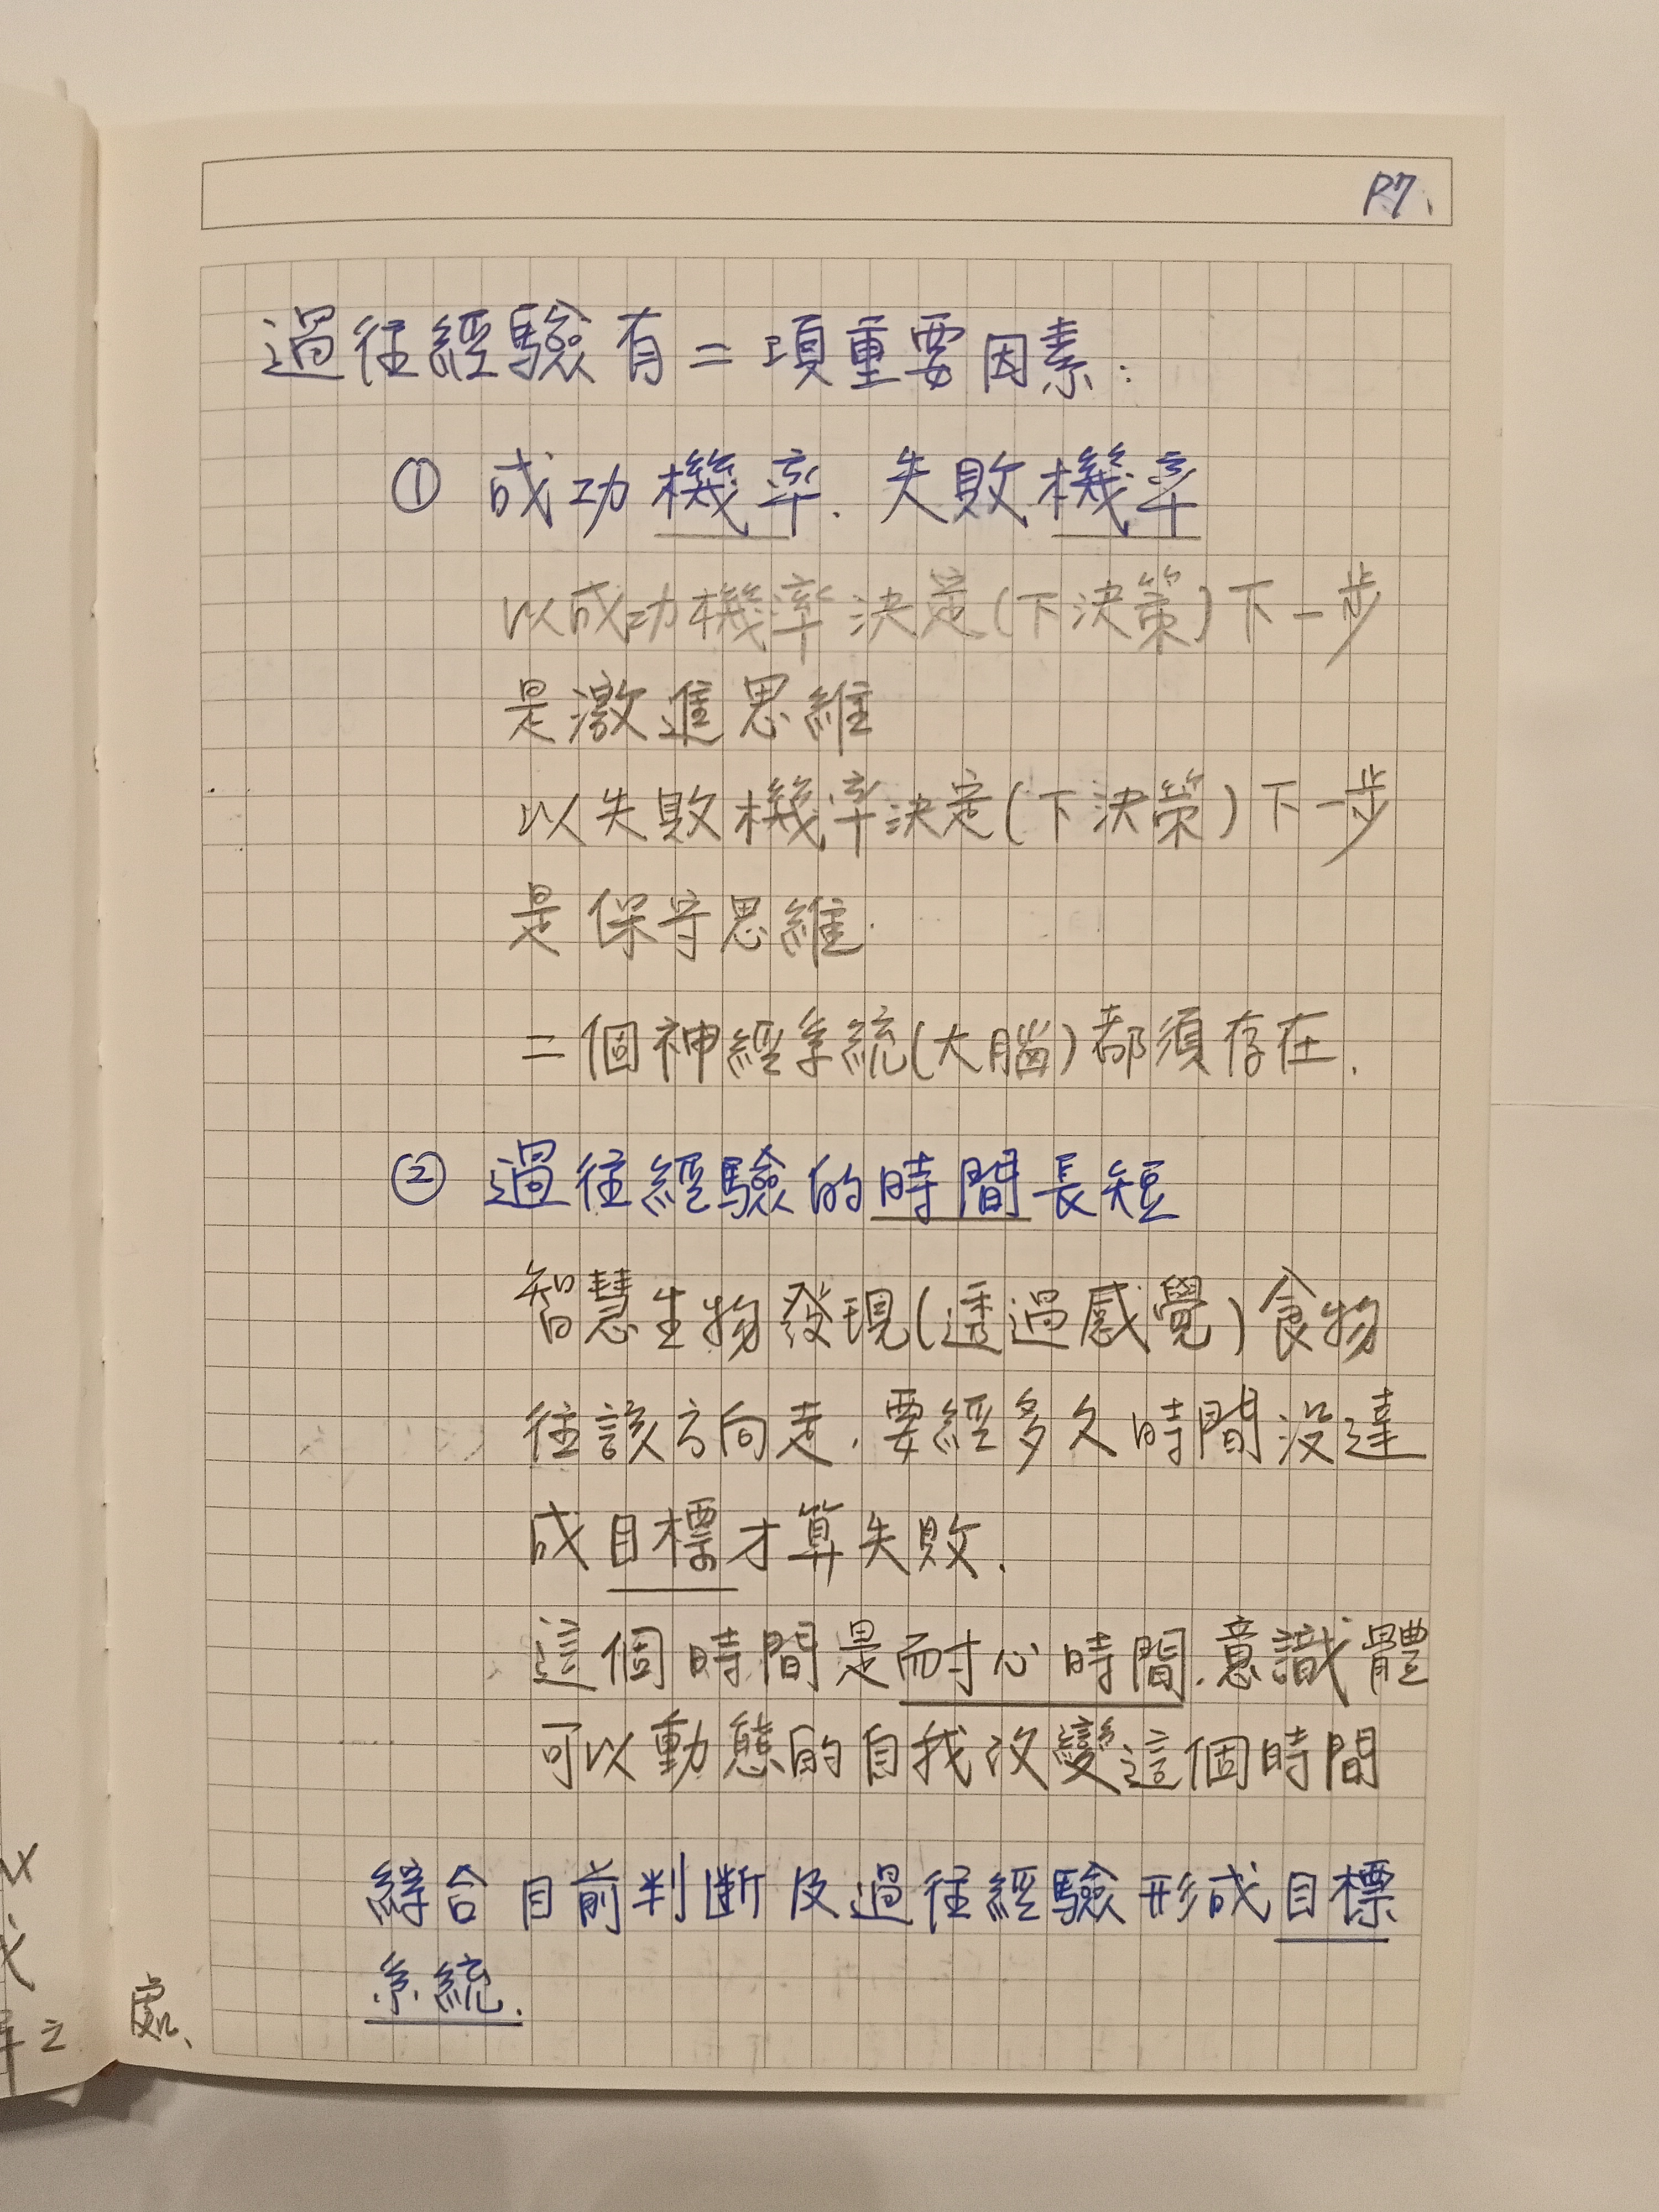 P7.
過往經驗有二項重要因素:
① 成功機率. 失敗機率
以成功機率決定(下決策)下一步
是激進思維
以失敗機率決定(下決策)下一步
是保守思維.
二個神經系統(大腦)都須存在.
② 過往經驗的時間長短
智慧生物發現(透過感覺)食物
往該方向走, 要經多久時間沒達
成目標才算失敗.
這個時間是耐心時間. 意識體
可以動態的自我改變這個時間
綜合目前判斷及過往經驗形成目標
系統.
之處、